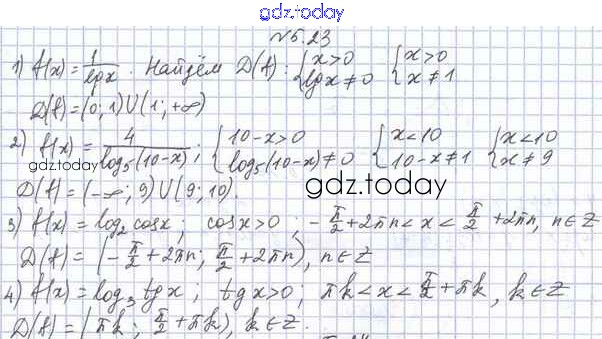 gdz.today
№5.23
1) f(x) = 1/lg x. Найдём D(f): { x>0 { x>0
{ lg x ≠ 0 { x ≠ 1
D(f) = (0; 1) ∪ (1; +∞)
2) f(x) = 4/log₅(10-x); { 10-x>0 { x<10 { x<10
{ log₅(10-x) ≠ 0 { 10-x ≠ 1 { x ≠ 9
gdz.today
D(f) = (-∞; 9) ∪ (9; 10).
gdz.today
3) f(x) = log₂ cos x; cos x>0; -π/2 + 2πn < x < π/2 + 2πn, n∈Z
D(f) = (-π/2 + 2πn; π/2 + 2πn), n∈Z
4) f(x) = log₃ tg x; tg x>0; πk < x < π/2 + πk, k∈Z
D(f) = (πk; π/2 + πk), k∈Z.